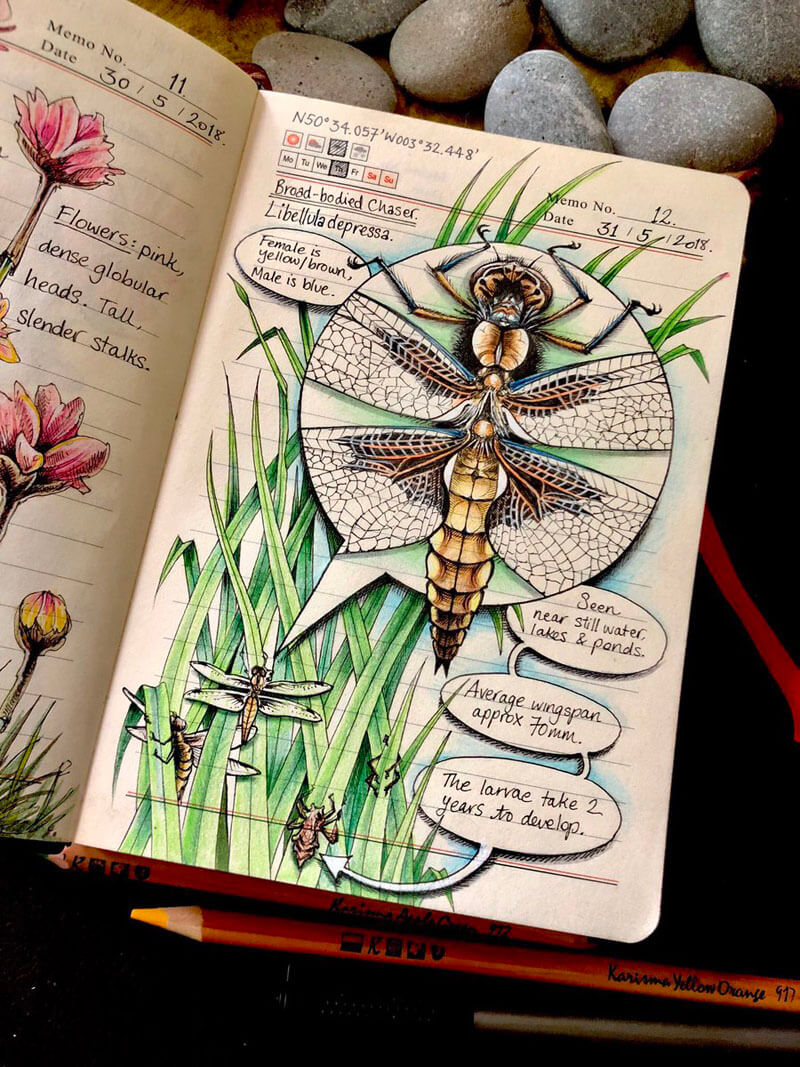 Memo No. 11
Date 30 / 5 / 2018.
Flowers: pink,
dense globular
heads. Tall,
slender stalks.
N50°34.057'W003°32.448'
Mo Tu We Th Fr Sa Su
Memo No. 12.
Date 31 / 5 / 2018.
Broad-bodied Chaser.
Libellula depressa.
Female is
yellow/brown.
Male is blue.
Seen
near still water,
lakes & ponds.
Average wingspan
approx 70mm.
The larvae take 2
years to develop.
Karisma
Karisma Yellow Orange 917